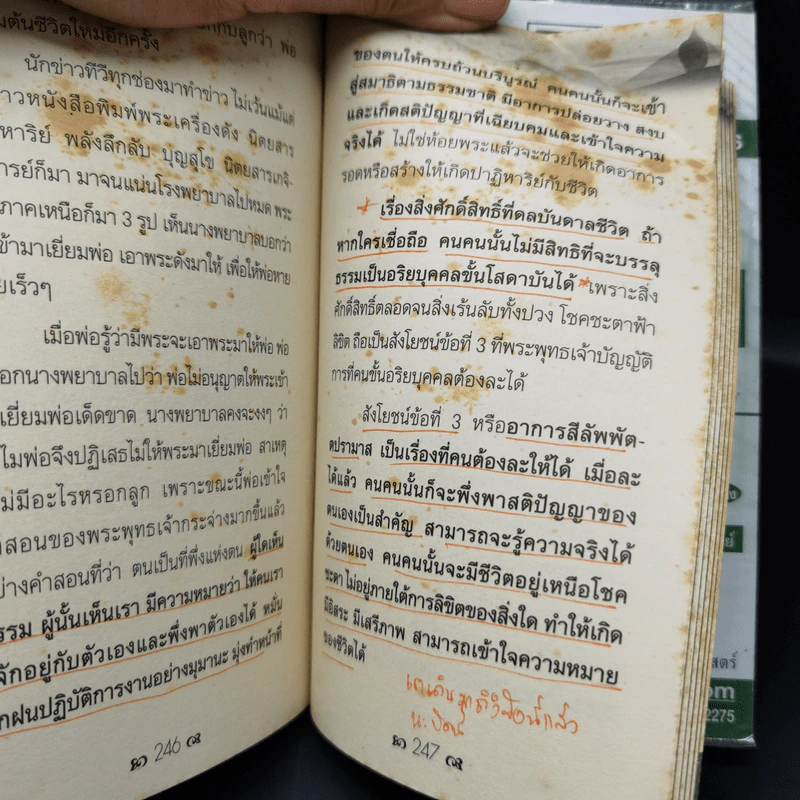 มต้นชีวิตใหม่อีกครั้ง
นักข่าวทีวีทุกช่องมาทำข่าว ไม่เว้นแม้แต่
าวหนังสือพิมพ์พระเครื่องดัง นิตยสาร
หาริย์ พลังลึกลับ บุญสุโข นิตยสารเกจิ-
ารย์ก็มา มาจนแน่นโรงพยาบาลไปหมด พระ
ภาคเหนือก็มา 3 รูป เห็นนางพยาบาลบอกว่า
ข้ามาเยี่ยมพ่อ เอาพระดังมาให้ เพื่อให้พ่อหาย
ยเร็วๆ
เมื่อพ่อรู้ว่ามีพระจะเอาพระมาให้พ่อ พ่อ
อกนางพยาบาลไปว่า พ่อไม่อนุญาตให้พระเข้า
เยี่ยมพ่อเด็ดขาด นางพยาบาลคงจะงงๆ ว่า
ไมพ่อจึงปฏิเสธไม่ให้พระมาเยี่ยมพ่อ สาเหตุ
ม่มีอะไรหรอกลูก เพราะขณะนี้พ่อเข้าใจ
ำสอนของพระพุทธเจ้ากระจ่างมากขึ้นแล้ว
ย่างคำสอนที่ว่า ตนเป็นที่พึ่งแห่งตน ผู้ใดเห็น
รรม ผู้นั้นเห็นเรา มีความหมายว่า ให้คนเรา
จักอยู่กับตัวเองและพึ่งพาตัวเองได้ หมั่น
กฝนปฏิบัติการงานอย่างมุมานะ มุ่งทำหน้าที่
246
ของตนให้ครบถ้วนบริบูรณ์ คนคนนั้นก็จะเข้า
สู่สมาธิตามธรรมชาติ มีอาการปล่อยวาง สงบ
และเกิดสติปัญญาที่เฉียบคมและเข้าใจความ
จริงได้ ไม่ใช่ห้อยพระแล้วจะช่วยให้เกิดอาการ
รอดหรือสร้างให้เกิดปาฏิหาริย์กับชีวิต
เรื่องสิ่งศักดิ์สิทธิ์ที่ดลบันดาลชีวิต ถ้า
หากใครเชื่อถือ คนคนนั้นไม่มีสิทธิที่จะบรรลุ
ธรรมเป็นอริยบุคคลขั้นโสดาบันได้ เพราะสิ่ง
ศักดิ์สิทธิ์ตลอดจนสิ่งเร้นลับทั้งปวง โชคชะตาฟ้า
ลิขิต ถือเป็นสังโยชน์ข้อที่ 3 ที่พระพุทธเจ้าบัญญัติ
การที่คนขั้นอริยบุคคลต้องละได้
สังโยชน์ข้อที่ 3 หรืออาการสีลัพพัต-
ตปรามาส เป็นเรื่องที่คนต้องละให้ได้ เมื่อละ
ได้แล้ว คนคนนั้นก็จะพึ่งพาสติปัญญาของ
ตนเองเป็นสำคัญ สามารถจะรู้ความจริงได้
ด้วยตนเอง คนคนนั้นจะมีชีวิตอยู่เหนือโชค
ชะตา ไม่อยู่ภายใต้การลิขิตของสิ่งใด ทำให้เกิด
มีอิสระ มีเสรีภาพ สามารถเข้าใจความหมาย
ของชีวิตได้
247
สตร์
om
2275